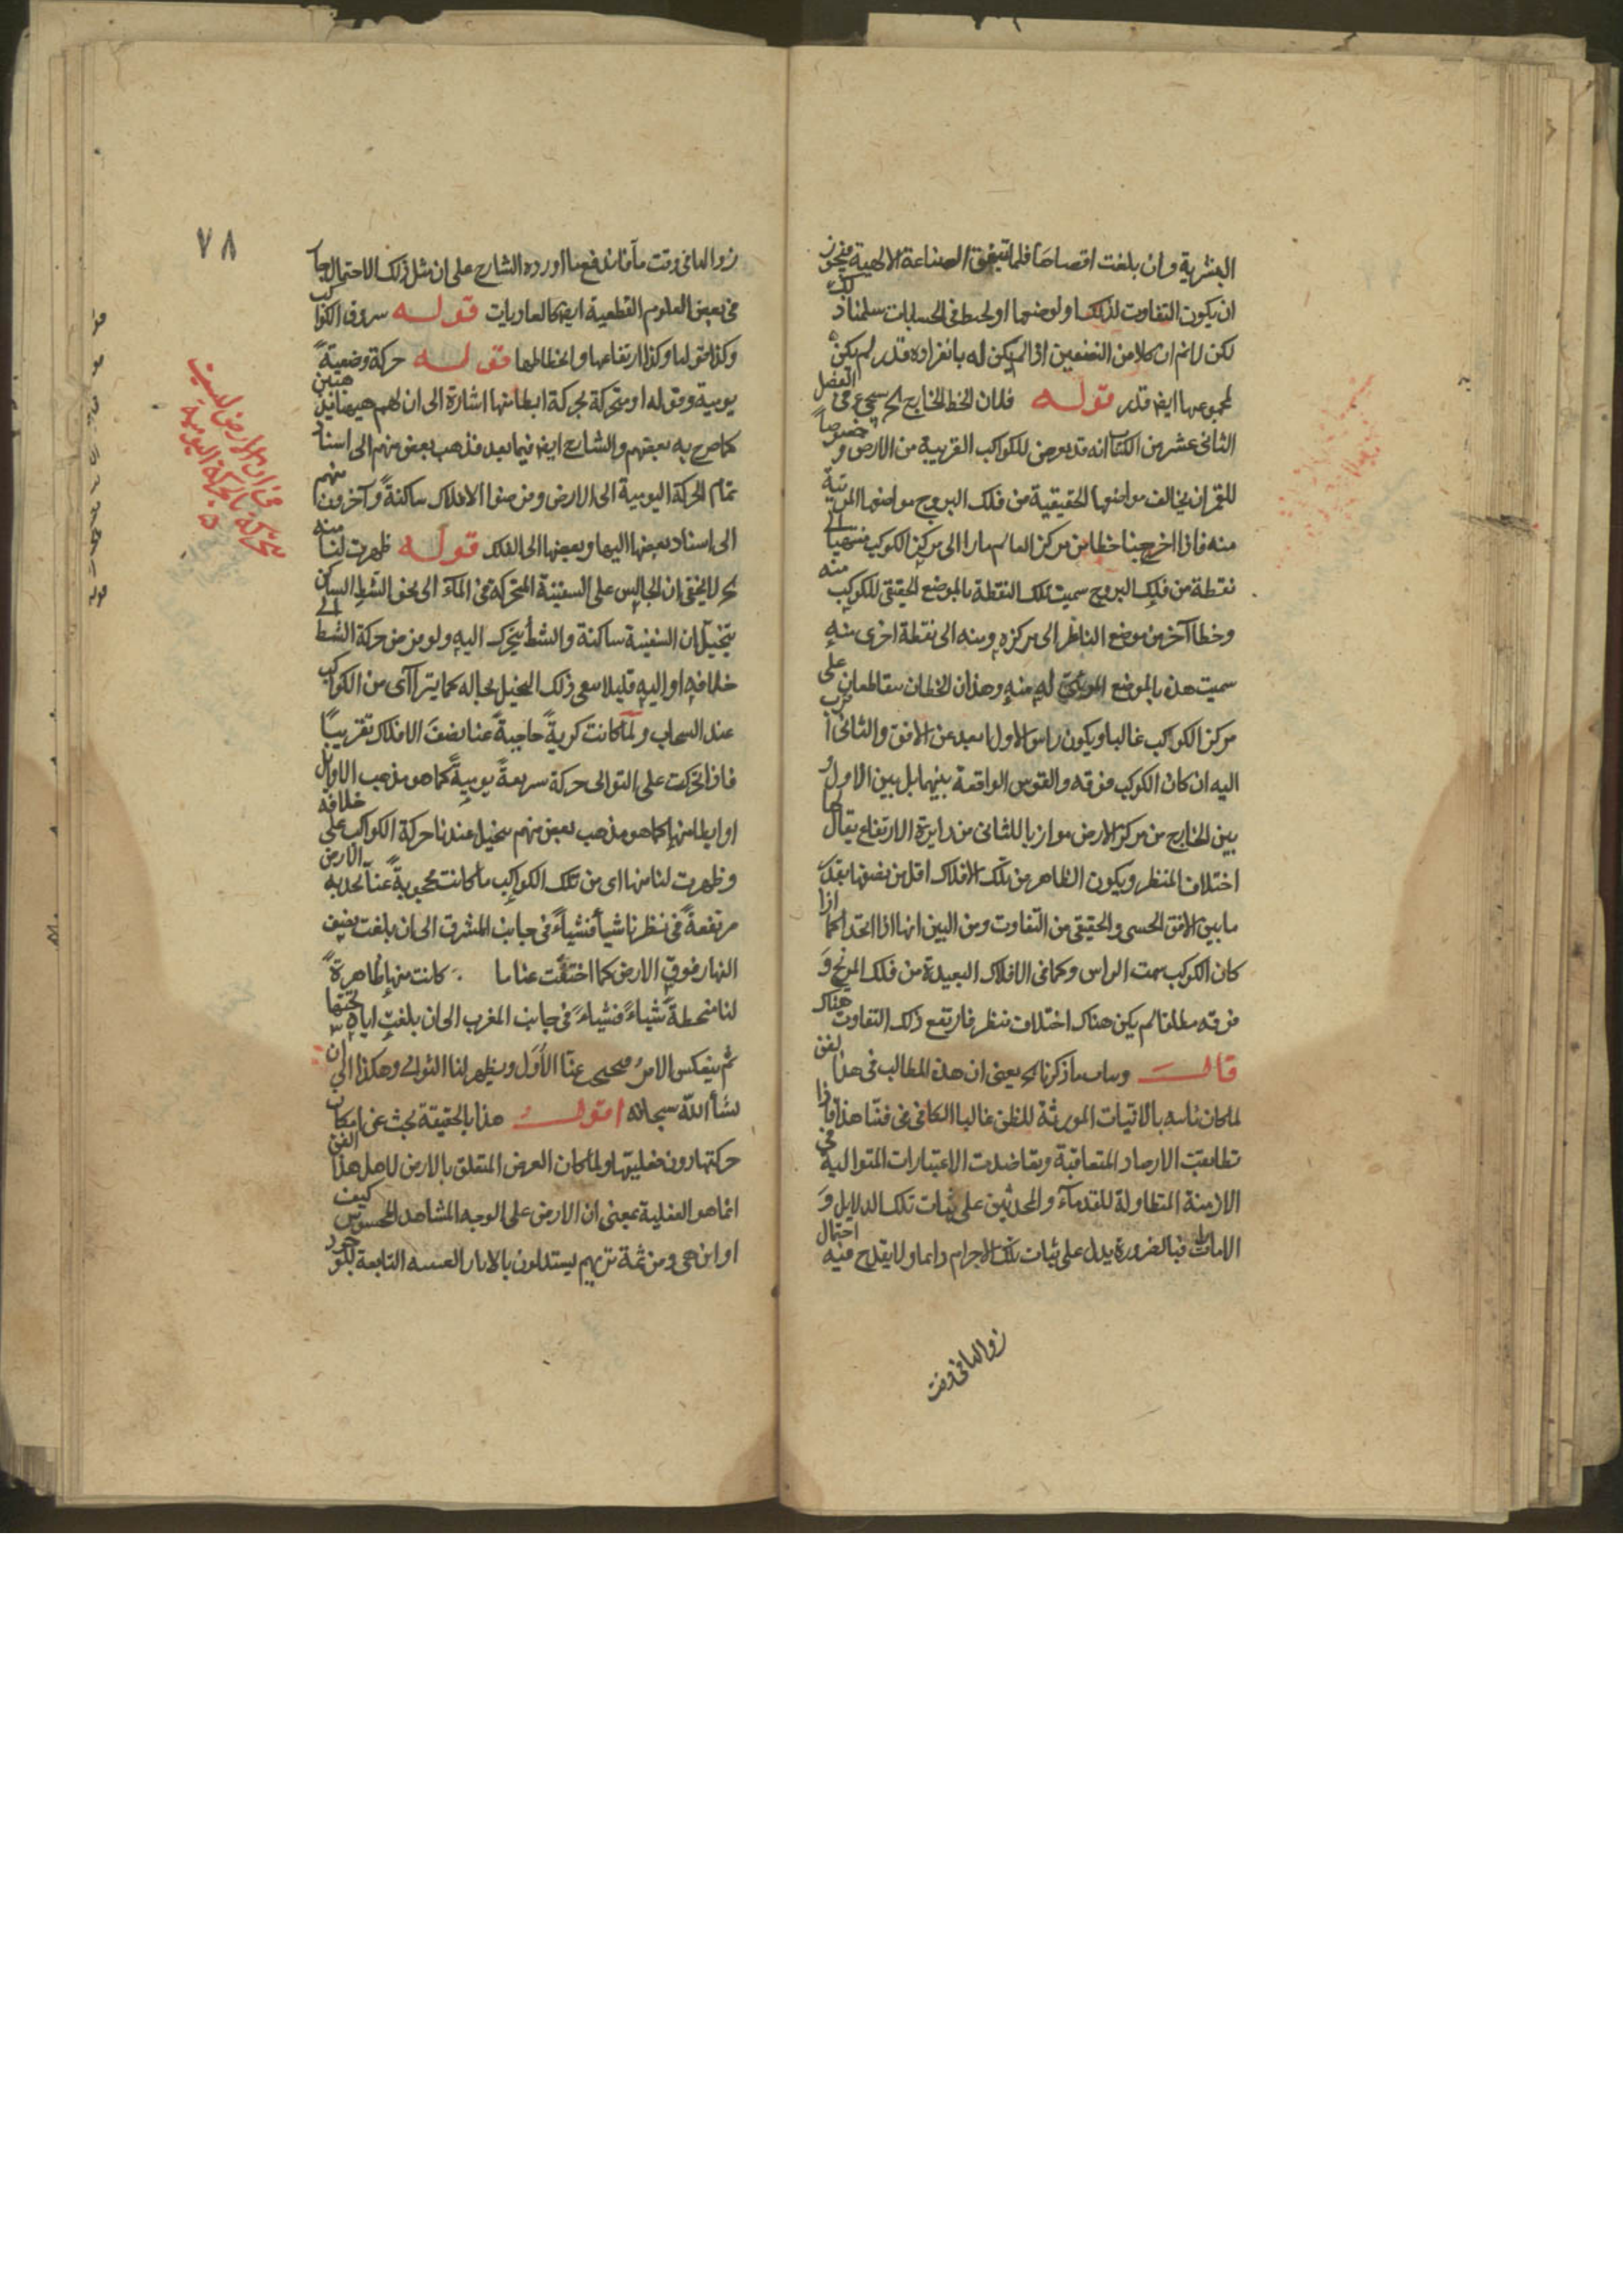 البشرية وان بلغت اقصاها فلما تتفق الصناعة الالهية فيجوز
ان يكون التفاوت لذلك او لوضعهما او لخبط فى الحسابات سلمنا ذلك
لكن لا نم ان كلا من النصفين اذا لم يكن له بانفراده قدر لم يكن
لمجموعهما ايضا قدر قوله فلان الخط الخارج الخ سيجئ فى الفصل
الثانى عشر من الكتاب انه قد يعرض للكواكب القريبة من الارض وخصوصاً
للقمر ان يخالف مواضعها الحقيقية من فلك البروج مواضعها المرئية
منه فاذا اخرجنا خطا من مركز العالم مارا الى مركز الكوكب منتهيا الى
نقطة من فلك البروج سميت تلك النقطة بالموضع الحقيقى للكوكب منه
وخطا آخر من موضع الناظر الى مركزه ومنه الى نقطة اخرى منه
سميت هذه بالموضع المرئى له منه وهذان الخطان يتقاطعان على
مركز الكواكب غالبا ويكون راس الاول ابعد عن الافق والثانى اقرب
اليه ان كان الكوكب فوقه والقوس الواقعة بينهما بل بين الاول و
بين الخارج من مركز الارض موازيا للثانى من دايرة الارتفاع يقال لها
اختلاف المنظر ويكون الظاهر من تلك الافلاك اقل من نصفها بقدر
ما بين الافق الحسى والحقيقى من التفاوت ومن البين انهما اذا اتحدا كما اذا
كان الكوكب سمت الراس وكما فى الافلاك البعيدة من فلك المريخ و
فوقه مطلقا لم يكن هناك اختلاف منظر فارتفع ذلك التفاوت هناك
قال وبيان ما ذكرنا الخ يعنى ان هذه المطالب فى هذا الفن
لما كان ثابته بالانيات المورثة للظن غالبا الكافى فى فننا هذا فاذا
تطابقت الارصاد المتعاقبة وتعاضدت الاعتبارات المتوالية فى
الازمنة المتطاولة للقدمآء والمحدثين على ثبات تلك الدلايل و
الامارات فبالضرورة يدل على ثبات تلك الاجرام دايما ولا يقدح فيه احتمال
زوالها فى وقت
٧٨
زوالها فى وقت ما فاندفع ما اورده الشارح على ان مثل ذلك الاحتمال جار
فى بعض العلوم القطعية ايضا كالعاديات قوله شروق الكواكب
وكذا افولها وكذا ارتفاعها وانحطاطها قوله حركة وضعية
يومية وقوله او متحركة بحركة ابطا منها اشارة الى ان لهم ههنا مذهبين
كما صرح به بعضهم والشارح ايضا فيما بعد فذهب بعض منهم الى اسناد
تمام الحركة اليومية الى الارض وفرضوا الافلاك ساكنة وآخرون منهم
الى اسناد بعضها اليها وبعضها الى الفلك قوله ظهرت لنا منه
الخ لا يخفى ان الجالس على السفينة المتحركة فى المآء الى نحو الشط الساكن
يتخيل ان السفينة ساكنة والشط يتحرك اليه ولو فرض حركة الشط الى
خلافه او اليه قليلا بقى ذلك التخيل بحاله كما يترا آى من الكواكب
عند السحاب ولما كانت كرية حاجبة عنا نصف الافلاك تقريباً
فاذا تحركت على التوالى حركة سريعة يومية كما هو مذهب الاوايل
او ابطا منها كما هو مذهب بعض منهم يتخيل عندنا حركة الكواكب على خلافه
وظهرت لنا منها اى من تلك الكواكب ما كانت محجوبة عنا بحدبه الارض
مرتفعة فى نظرنا شيأ فشيأ فى جانب المشرق الى ان بلغت نصف
النهار فوق الارض كما اختفت عنا ما كانت منها ظاهرة
لنا منحطة شيأ فشيأ فى جانب المغرب الى ان بلغت اياه تحتها
ثم ينعكس الامر فيحجب عنا الاول ويظهر لنا الثوانى وهكذا الى ان
يشأ الله سبحانه اقول هذا بالحقيقة بحث عن امكان
حركتها دون فعليتها ولما كان الغرض المتعلق بالارض لاهل هذا الفن
انما هو الفعلية بمعنى ان الارض على الوجه المشاهد المحسوس كيف
او اين هى ومن ثمة تريهم يستدلون بالآثار التابعة لوجود
فى ان الارض ليست
متحركة بالحركة اليومية